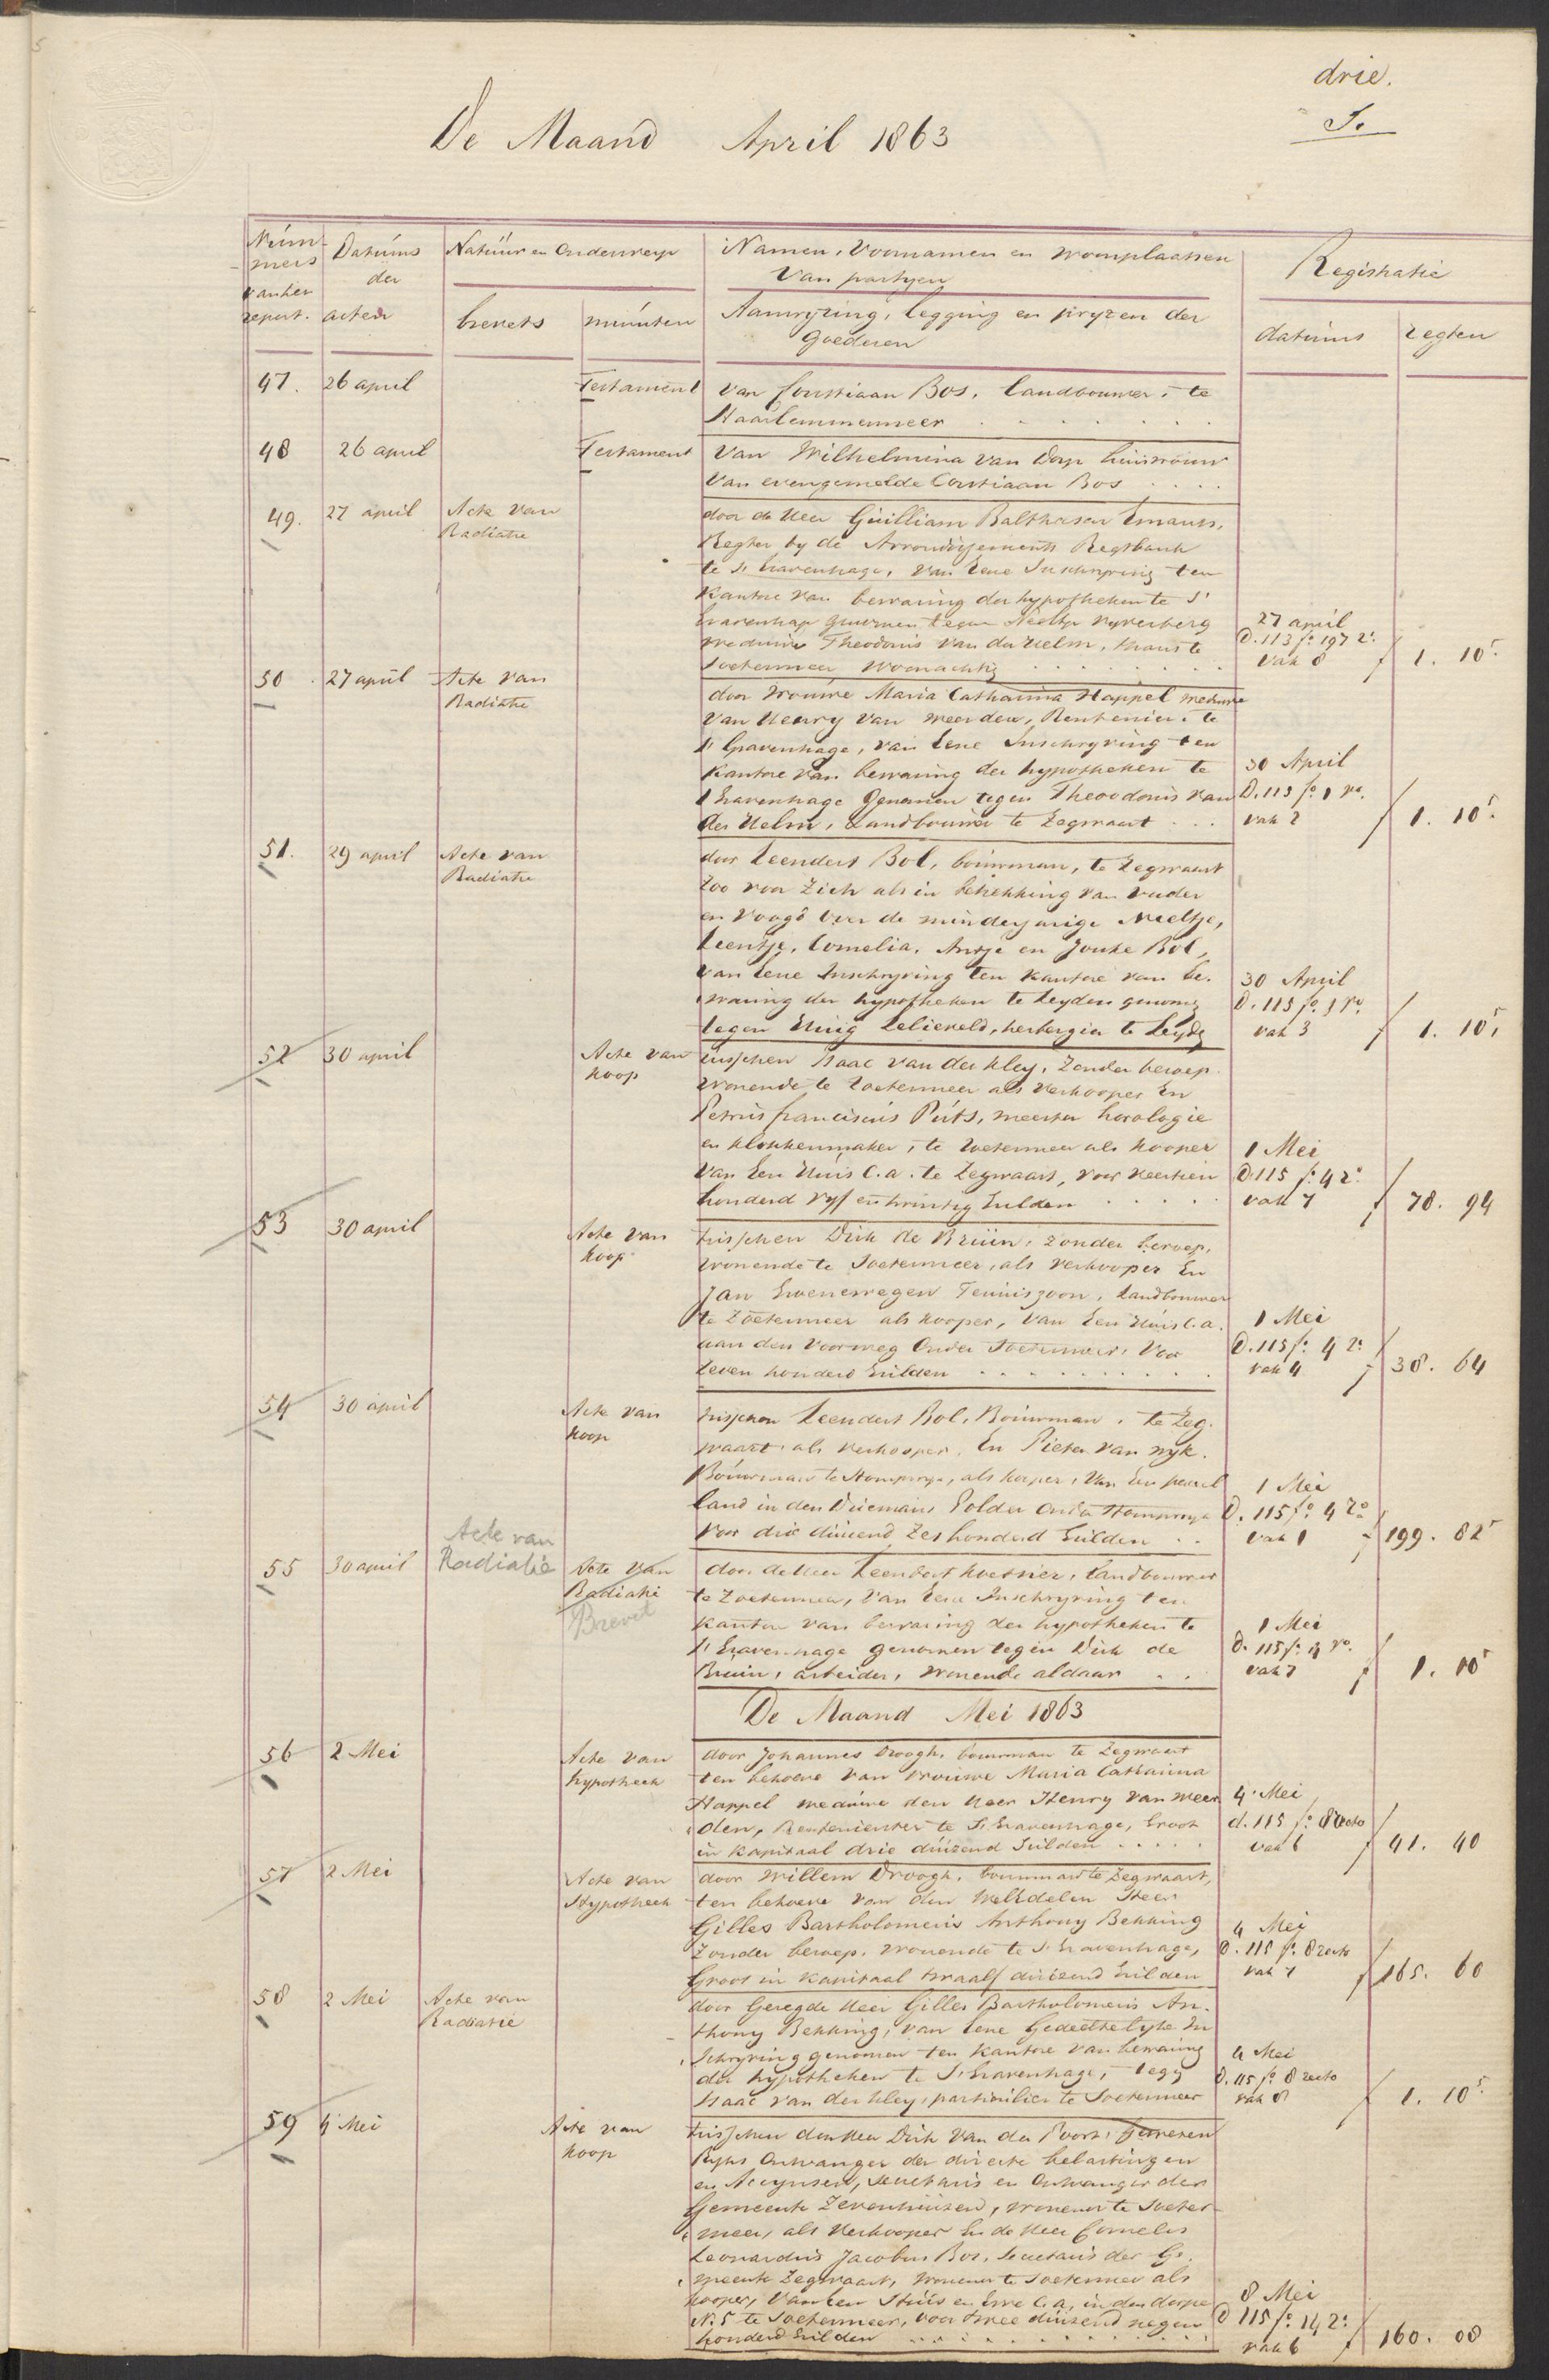 drie.
De Maand April 1863
Num-
mers
van het
repert.
Datums
der
acten
Natuur en Onderwerp
brevets
minuten
Namen, Voornamen en woonplaatsen
Van partyen
Aanwyzing, legging en pryzen der
Goederen
Registratie
datums
regten
47. 26 april Testament van Corstiaan Bos, landbouwer, te
Haarlemmermeer
48 26 april Testament Van Wilhelmina van Dorp huisvrouw
Van evengemelde Corstiaan Bos
49. 27 april Acte van
Radiatie
door de Heer Guilliam Balthasar Emants,
Regter by de Arrondissements Regtbank
te s' Gravenhage, van Eene Inschryving ten
Kantore van bewaring der hypotheken te s'
Gravenhage genomen tegen Neeltje
weduwe Theodorus van der Helm, thans te
Soetermeer Woonachtig
27 april
D. 113 fo. 197 ro.
vak 8
f 1. 10 5
50 27 april Acte van
Radiatie
door Vrouwe Maria Catharina Happel weduwe
van Henry van Meerden, Rentenier te
s' Gravenhage, van Eene Inschryving ten
Kantore van bewaring der hypotheken te
s Gravenhage Genomen tegen Theodorus van
der Helm, Landbouwer te Zegwaart
30 April
D. 115 fo. 1 vo.
vak 2
f 1. 10 5
51. 29 april Acte van
Radiatie
door Leendert Bol, bouwman, te Zegwaart
Zoo voor Zich als in betrekking van vader
en Voogd over de minderjarige Neeltje,
Leentje, Cornelia, Antje en Jouke Bol,
van Eene Inschryving ten kantore van be-
waring der hypotheken te Leyden genomen
tegen Huig Lelieveld, herbergier te Leyden
30 April
D. 115 fo. 1 vo.
vak 3
f 1. 10 5
52 30 april Acte van
koop
tusschen Isaac van der Kley, Zonder beroep
wonende te Zoetermeer als Verkooper En
Petrus franciscus Puts, meester horologie
en klokkenmaker, te Zoetermeer als kooper
Van Een Huis C.a. te Zegwaart, voor veertien
honderd vyf en twintig Gulden
1 Mei
D. 115 fo. 4 ro.
vak 7
f 78. 94
53 30 april Acte van
koop
tusschen Dirk de Bruin, zonder beroep,
wonende te Soetermeer, als Verkooper En
Jan Groenewegen Teuniszoon, Landbouwer
te Zoetermeer als kooper, Van Een Huis C.a.
aan den Voorweg Onder Soetermeer, Voor
Zeven honderd Gulden
1 Mei
D. 115 fo. 4 ro.
vak 4
f 38. 64
54 30 april Acte van
koop
tusschen Leendert Bol, Bouwman, te Zeg-
waart als verkooper, En Pieter van Wyk,
Bouwman te Stompwyk, als kooper, Van Een perceel
land in den Driemans Polder Onder Stompwyk
Voor drie duizend Zes honderd Gulden
1 Mei
D. 115 fo. 4 ro.
vak 1
f 199. 82 5
Acte van
Radiatie
55 30 april Acte van
Radiatie
Brevet
door de Heer Leendert Koetsier, landbouwer
te Zoetermeer, Van Eene Inschryving ten
kantore van bewaring der hypotheken te
s' Gravenhage genomen tegen Dirk de
Bruin, arbeider, wonende aldaar
1 Mei
D. 115 fo. 4 vo.
vak 7
f 1. 10 5
De Maand Mei 1863
56 2 Mei Acte van
hypotheek
door Johannes Droogh, bouwman te Zegwaart
ten behoeve van Vrouwe Maria Catharina
Happel weduwe den Heer Henry van Meer
den, Rentenierster te s' Gravenhage, Groot
in kapitaal drie duizend Gulden
4 Mei
d. 115 fo. 8 recto
vak 6
f 41. 40
57 2 Mei Acte van
Hypotheek
door Willem Droogh, bouwman te Zegwaart,
ten behoeve van den WelEdelen Heer
Gilles Bartholomeus Anthony Bekking
Zonder beroep, wonende te s' Gravenhage,
Groot in kapitaal twaalf duizend Gulden
4 Mei
D. 115 fo. 8 recto
vak 7
f 165. 60
58 2 Mei Acte van
Radiatie
door Gezegde Heer Gilles Bartholomeus An-
thony Bekking, van Eene Gedeeltelyke In
schryving genomen ten kantore van bewaring
der hypotheken te s' Gravenhage, tegen
Isaac van der Kley, particulier te Soetermeer
4 Mei
D. 115 fo. 8 recto
vak 8
f 1. 10 5
59 4 Mei Acte van
koop
tusschen den Heer Dirk van der Poort, Gewezen
Ryks Ontvanger der directe belastingen
en Accynsen, secretaris en Ontvanger der
Gemeente Zevenhuizen, wonende te Soeter-
meer, als Verkooper En de Heer Cornelis
Leonardus Jacobus Bos, Secretaris der Ge-
meente Zegwaart, wonende te Soetermeer als
kooper, Van Een Huis en Erve C.a, in den dorpe
N. 5 te Soetermeer, voor twee duizend negen
honderd Gulden
8 Mei
D 115 fo. 14 ro.
vak 6
f 160. 08